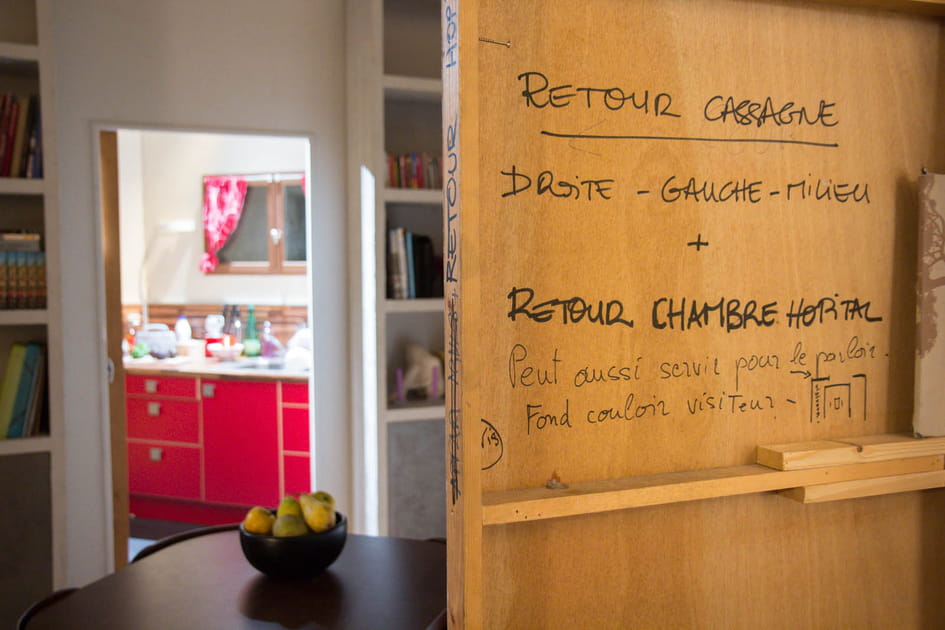 RETOUR CASSAGNE
DROITE - GAUCHE - MILIEU
+
RETOUR CHAMBRE HOPITAL
Peut aussi servir pour le parloir.
Fond couloir visiteur -
RETOUR HOP